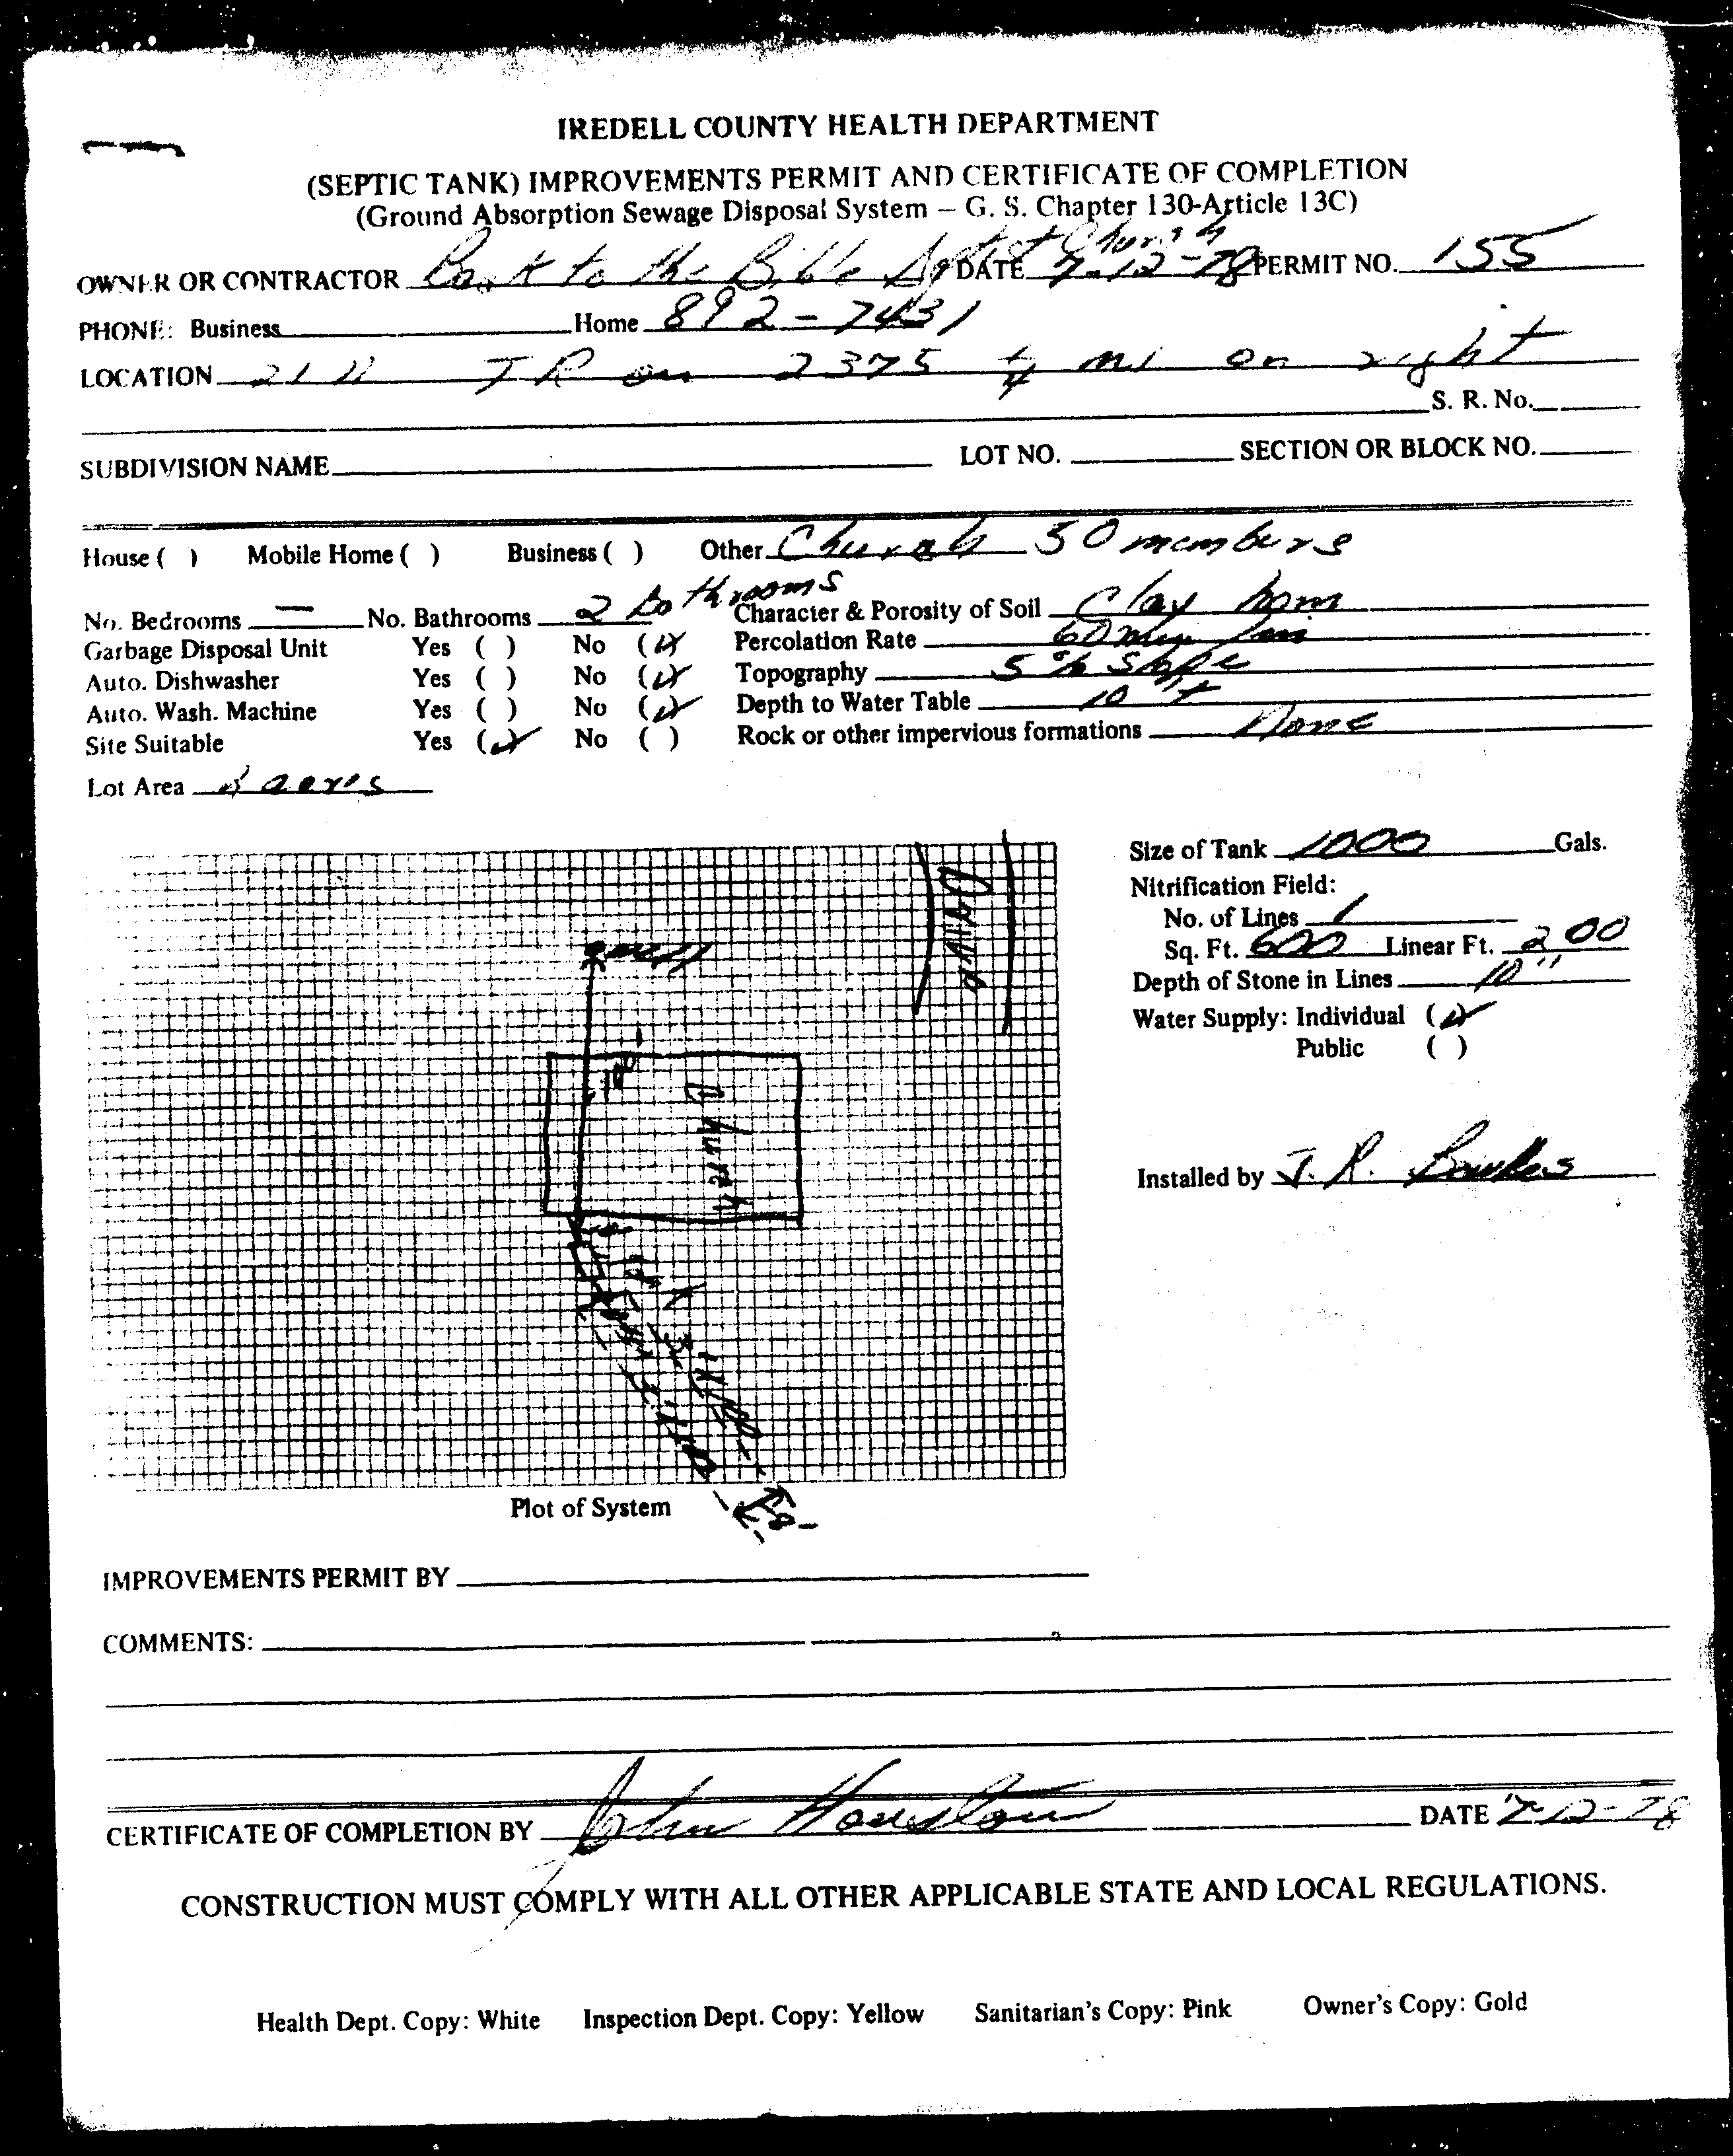 IREDELL COUNTY HEALTH DEPARTMENT
(SEPTIC TANK) IMPROVEMENTS PERMIT AND CERTIFICATE OF COMPLETION
(Ground Absorption Sewage Disposal System – G. S. Chapter 130-Article 13C)
OWNER OR CONTRACTOR Back to the Bible Church DATE 7-12-78 PERMIT NO. 155
PHONE: Business Home 892-7431
LOCATION 21 N TR on 2375 1/4 mi on right
S. R. No.
SUBDIVISION NAME LOT NO. SECTION OR BLOCK NO.
House ( ) Mobile Home ( ) Business ( ) Other Church 50 members
No. Bedrooms — No. Bathrooms 2 bathrooms Character & Porosity of Soil Clay
Garbage Disposal Unit Yes ( ) No (✓) Percolation Rate 60
Auto. Dishwasher Yes ( ) No (✓) Topography 5% slope
Auto. Wash. Machine Yes ( ) No (✓) Depth to Water Table 10 +
Site Suitable Yes (✓) No ( ) Rock or other impervious formations None
Lot Area acres
Size of Tank 1000 Gals.
Nitrification Field:
No. of Lines 1
Sq. Ft. 600 Linear Ft. 200
Depth of Stone in Lines 10"
Water Supply: Individual (✓)
Public ( )
Church
Installed by J. R.
Plot of System
IMPROVEMENTS PERMIT BY
COMMENTS:
CERTIFICATE OF COMPLETION BY John Houston DATE 7-12-78
CONSTRUCTION MUST COMPLY WITH ALL OTHER APPLICABLE STATE AND LOCAL REGULATIONS.
Health Dept. Copy: White Inspection Dept. Copy: Yellow Sanitarian's Copy: Pink Owner's Copy: Gold